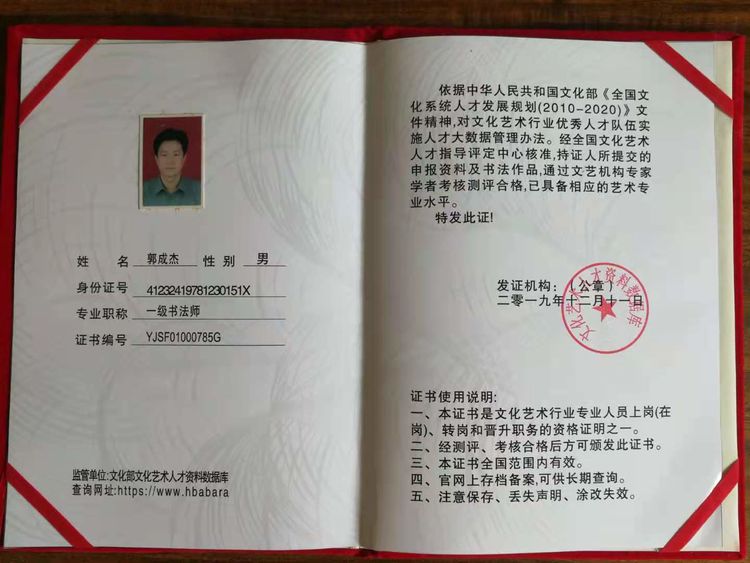 姓 名 郭成杰 性 别 男
身份证号 41232419781230151X
专业职称 一级书法师
证书编号 YJSF01000785G
监管单位:文化部文化艺术人才资料数据库
查询网址:https://www.hbabara
依据中华人民共和国文化部《全国文
化系统人才发展规划(2010-2020)》文
件精神,对文化艺术行业优秀人才队伍实
施人才大数据管理办法。经全国文化艺术
人才指导评定中心核准,持证人所提交的
申报资料及书法作品,通过文艺机构专家
学者考核测评合格,已具备相应的艺术专
业水平。
特发此证!
发证机构:(公章)
二零一九年十二月十一日
文化艺术人才资料数据库
证书使用说明:
一、本证书是文化艺术行业专业人员上岗(在
岗)、转岗和晋升职务的资格证明之一。
二、经测评、考核合格后方可颁发此证书。
三、本证书全国范围内有效。
四、官网上存档备案,可供长期查询。
五、注意保存、丢失声明、涂改失效。